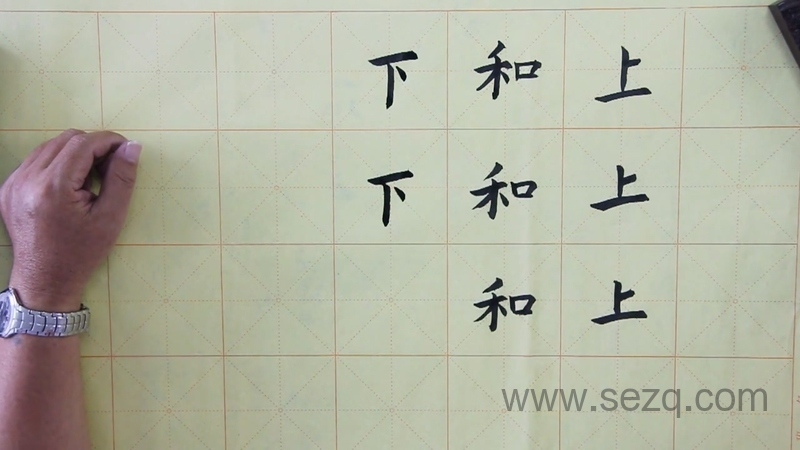 上上上
和和和
下下
www.sezq.com